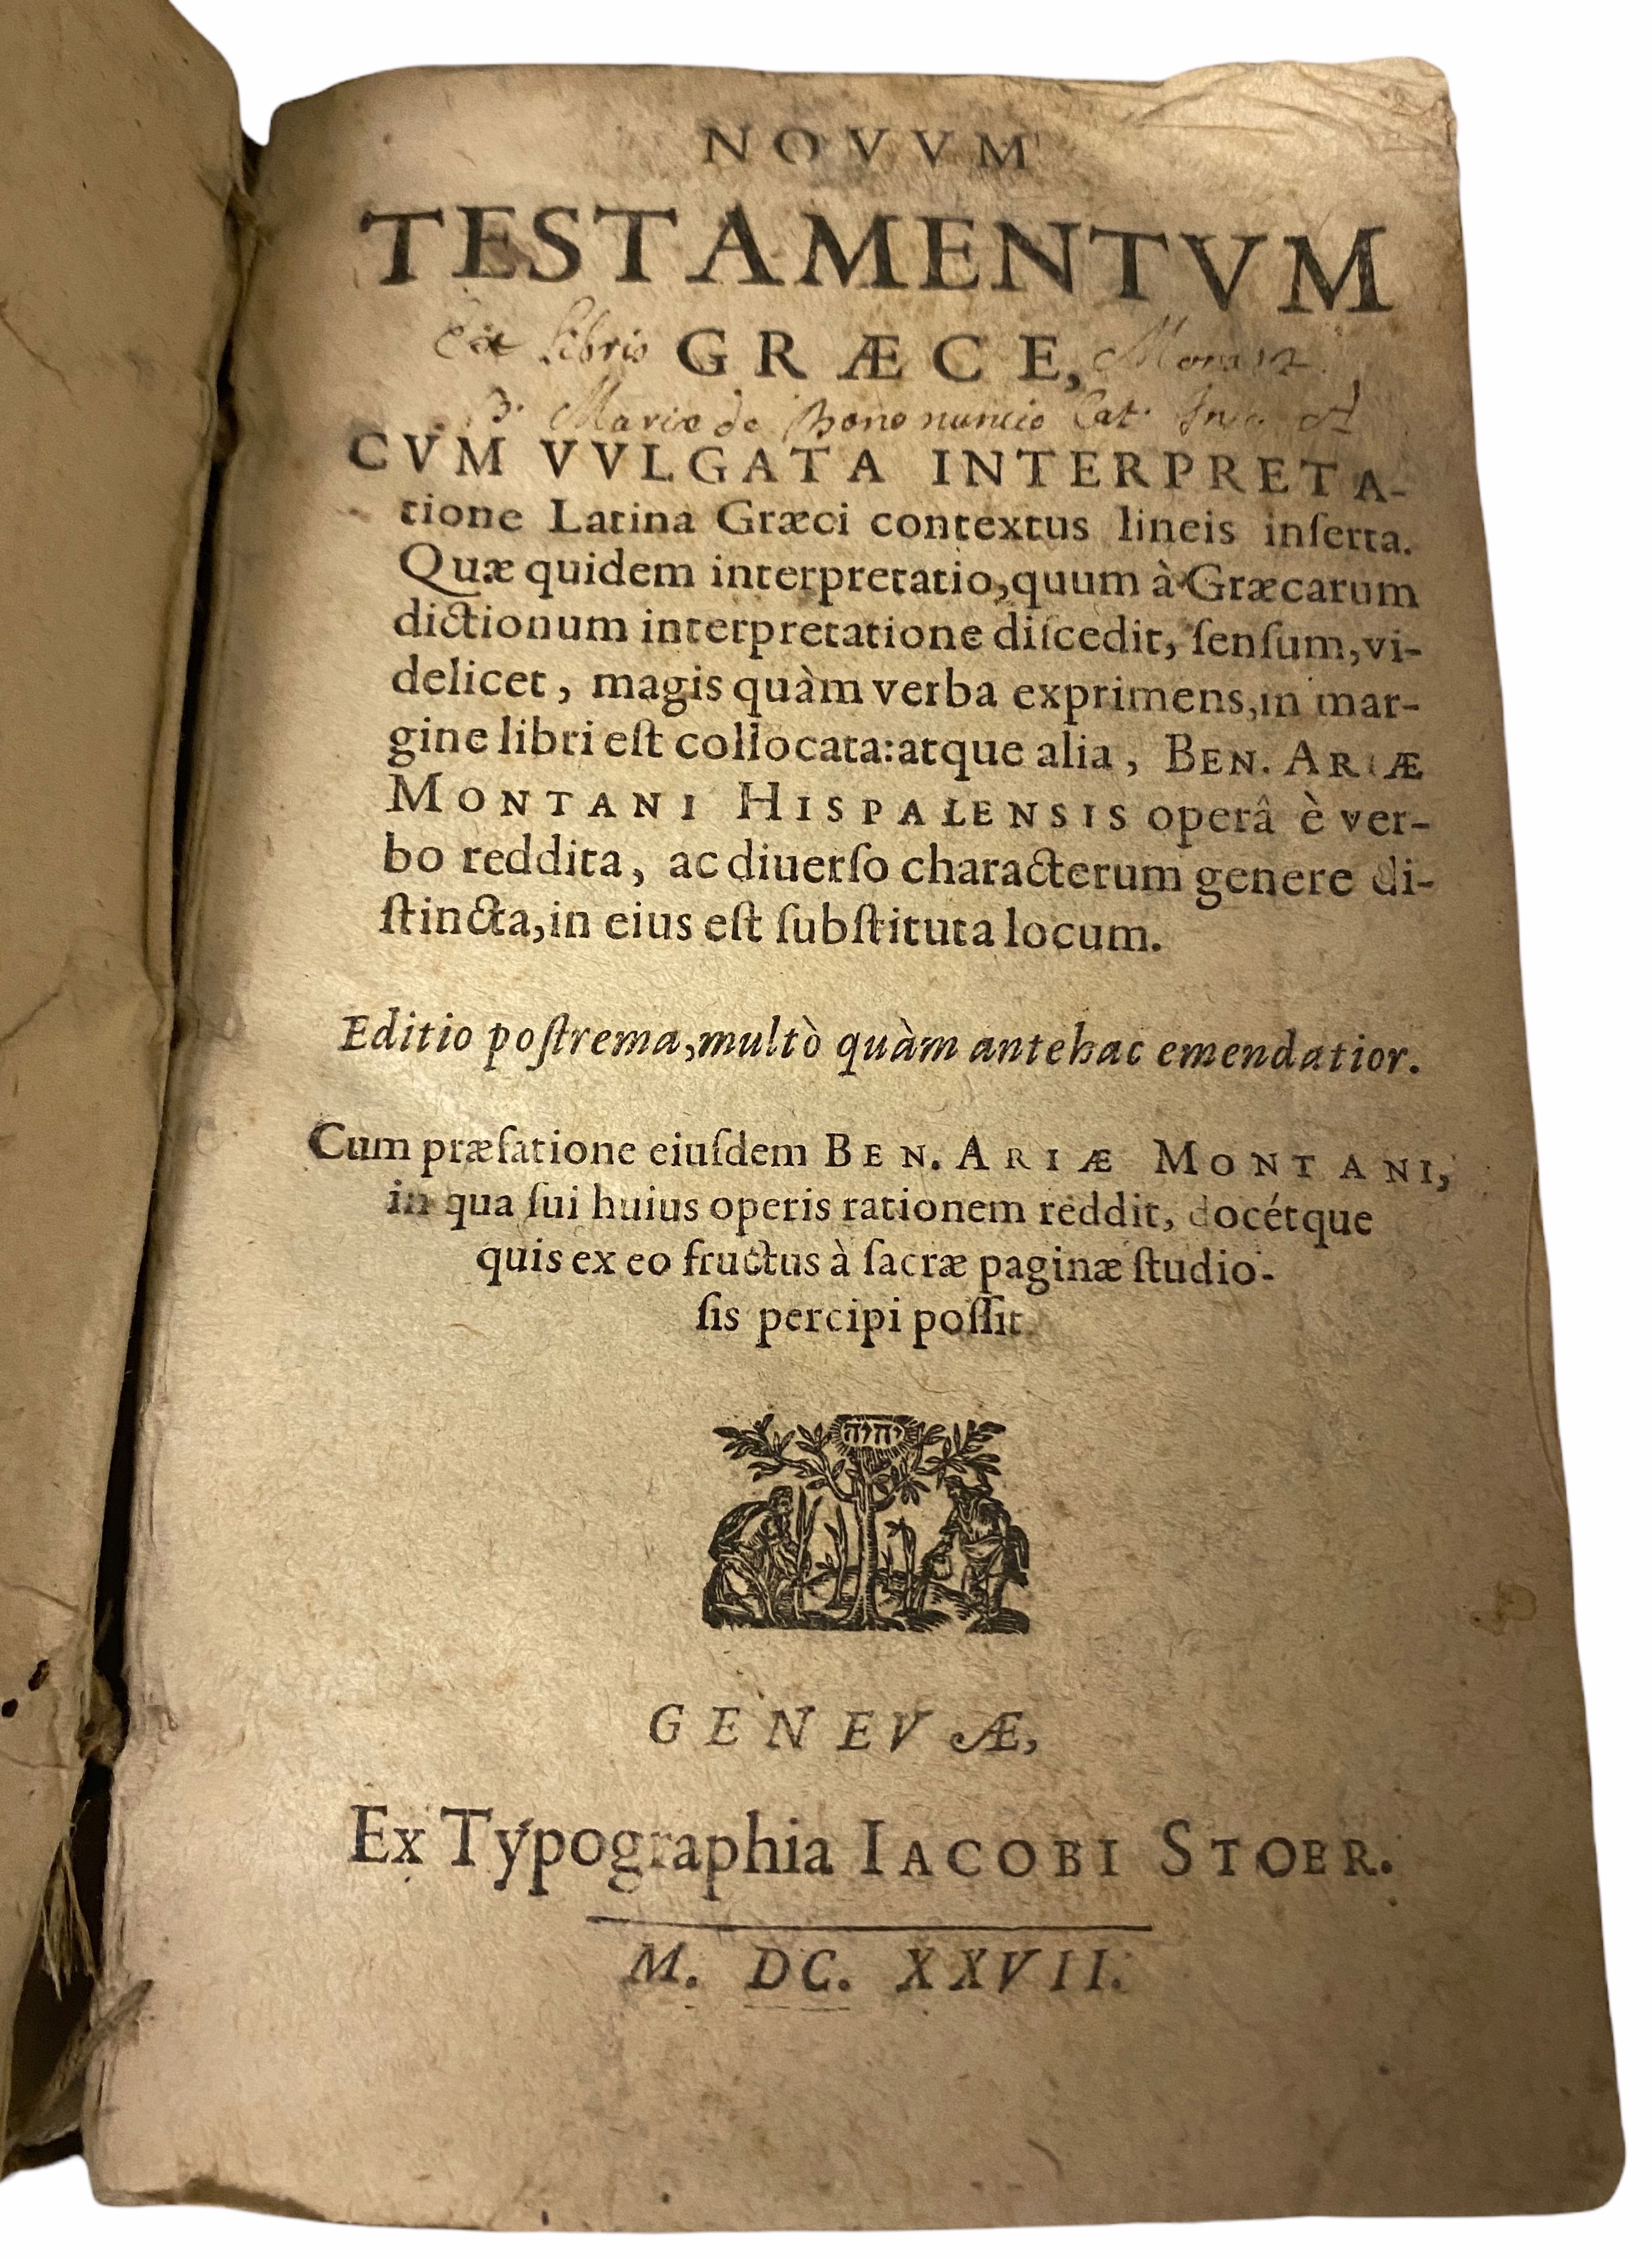 NOVVM
TESTAMENTVM
Ex libris GRÆCE,
B. Mariæ de Bono nuncio Cat.
CVM VVLGATA INTERPRETA-
tione Latina Græci contextus lineis inſerta.
Quæ quidem interpretatio,quum à Græcarum
dictionum interpretatione diſcedit, ſenſum,vi-
delicet, magis quàm verba exprimens,in mar-
gine libri eſt collocata:atque alia, BEN. ARIÆ
MONTANI HISPALENSIS operâ è ver-
bo reddita, ac diuerſo characterum genere di-
ſtincta,in eius eſt ſubſtituta locum.
Editio poſtrema,multò quàm antehac emendatior.
Cum præfatione eiuſdem BEN. ARIÆ MONTANI,
in qua ſui huius operis rationem reddit, docétque
quis ex eo fructus à ſacræ paginæ ſtudio-
ſis percipi poſſit.
יהוה
GENEVÆ,
Ex Typographia IACOBI STOER.
M. DC. XXVII.